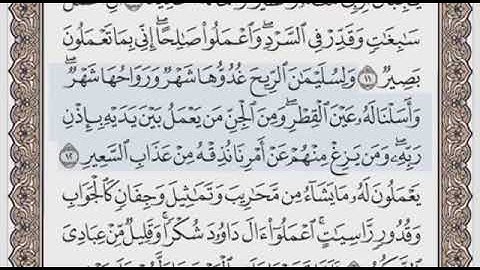 سَٰبِغَٰتٖ وَقَدِّرۡ فِي ٱلسَّرۡدِۖ وَٱعۡمَلُواْ صَٰلِحًاۖ إِنِّي بِمَا تَعۡمَلُونَ
بَصِيرٞ ١١ وَلِسُلَيۡمَٰنَ ٱلرِّيحَ غُدُوُّهَا شَهۡرٞ وَرَوَاحُهَا شَهۡرٞۖ
وَأَسَلۡنَا لَهُۥ عَيۡنَ ٱلۡقِطۡرِۖ وَمِنَ ٱلۡجِنِّ مَن يَعۡمَلُ بَيۡنَ يَدَيۡهِ بِإِذۡنِ
رَبِّهِۦۖ وَمَن يَزِغۡ مِنۡهُمۡ عَنۡ أَمۡرِنَا نُذِقۡهُ مِنۡ عَذَابِ ٱلسَّعِيرِ ١٢
يَعۡمَلُونَ لَهُۥ مَا يَشَآءُ مِن مَّحَٰرِيبَ وَتَمَٰثِيلَ وَجِفَانٖ كَٱلۡجَوَابِ
وَقُدُورٖ رَّاسِيَٰتٍۚ ٱعۡمَلُوٓاْ ءَالَ دَاوُۥدَ شُكۡرٗاۚ وَقَلِيلٞ مِّنۡ عِبَادِيَ